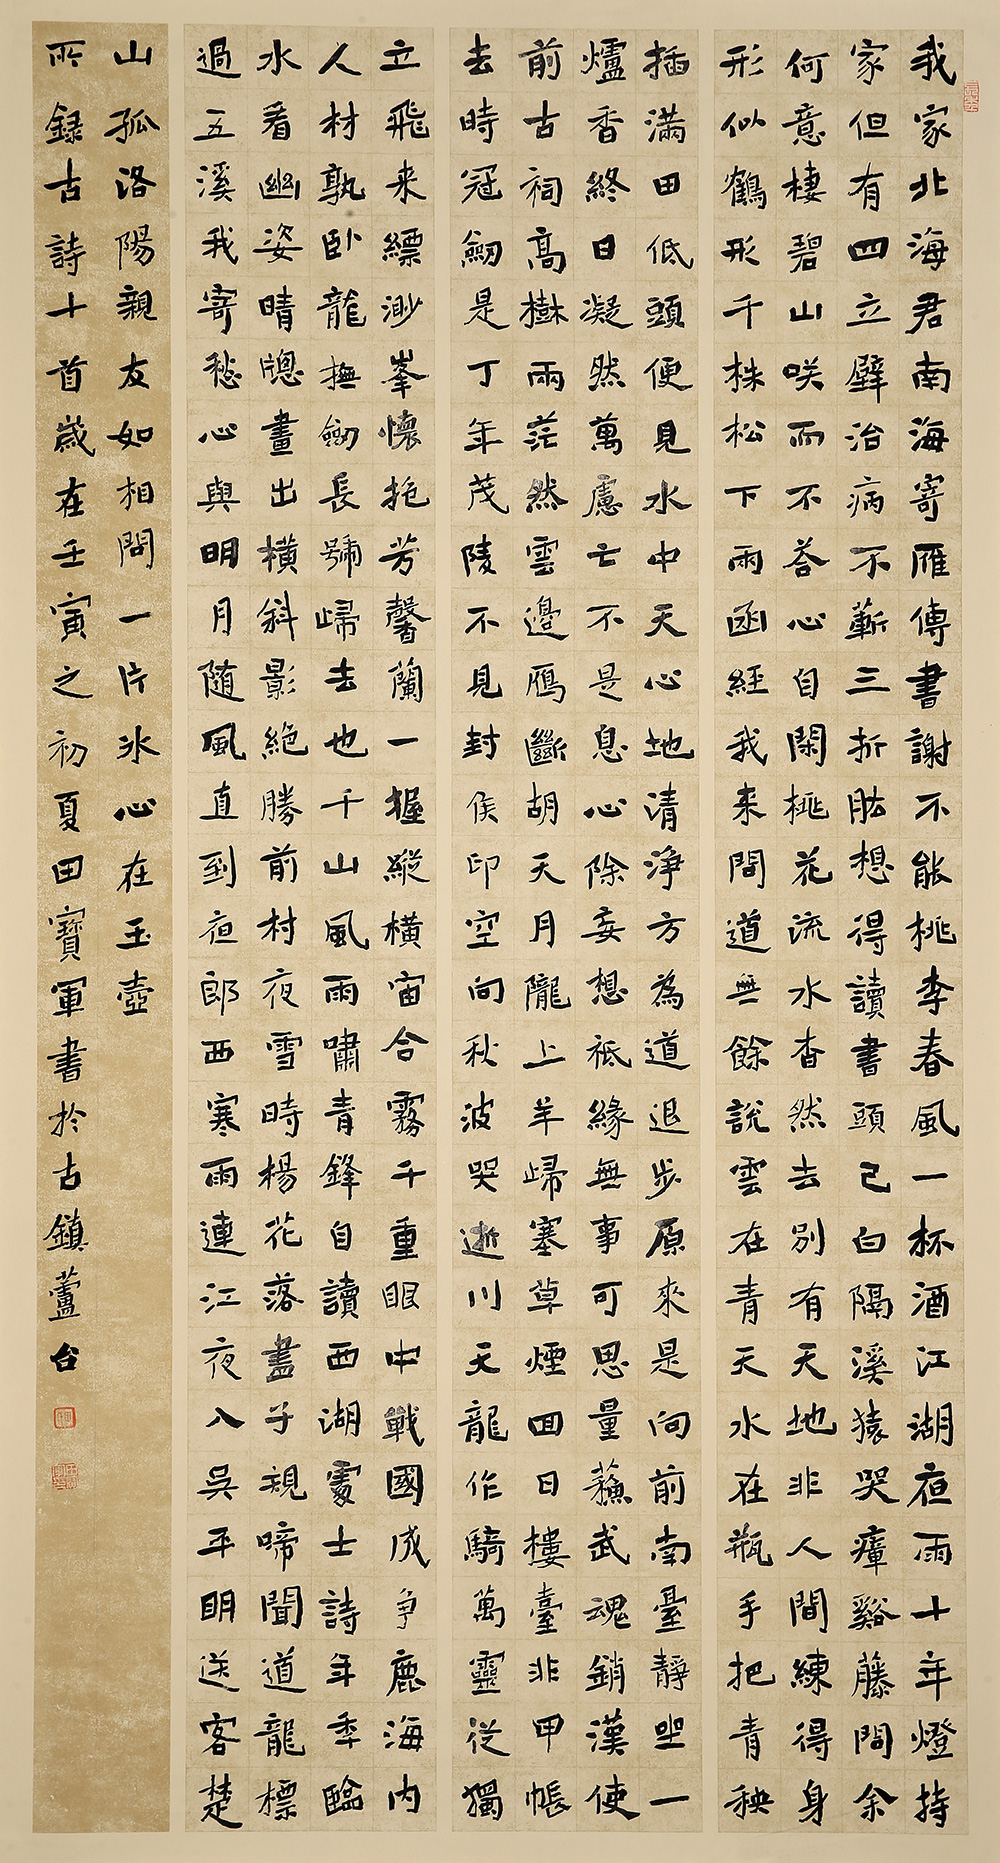 我家北海君南海寄雁傳書謝不能桃李春風一杯酒江湖夜雨十年燈持
家但有四立壁治病不蘄三折肱想得讀書頭已白隔溪猿哭瘴谿藤問余
何意棲碧山咲而不荅心自閑桃花流水杳然去別有天地非人間練得身
形似鶴形千株松下兩函經我来問道無餘說雲在青天水在瓶手把青秧
插滿田低頭便見水中天心地清淨方為道退步原來是向前南臺靜坐一
爐香終日凝然萬慮亡不是息心除妄想祗緣無事可思量蘇武魂銷漢使
前古祠高樹兩茫然雲邊鴈斷胡天月隴上羊歸塞草煙回日樓臺非甲帳
去時冠劒是丁年茂陵不見封侯印空向秋波哭逝川天龍作騎萬靈從獨
立飛来縹渺峯懷抱芳馨蘭一握縱橫宙合霧千重眼中戰國成争鹿海内
人材孰卧龍撫劒長號歸去也千山風雨嘯青鋒自讀西湖處士詩年年臨
水看幽姿晴窻畫出橫斜影絶勝前村夜雪時楊花落盡子規啼聞道龍標
過五溪我寄愁心與明月随風直到夜郎西寒雨連江夜入吳平明送客楚
山孤洛陽親友如相問一片冰心在玉壺
所録古詩十首歲在壬寅之初夏田寶軍書於古鎮蘆台